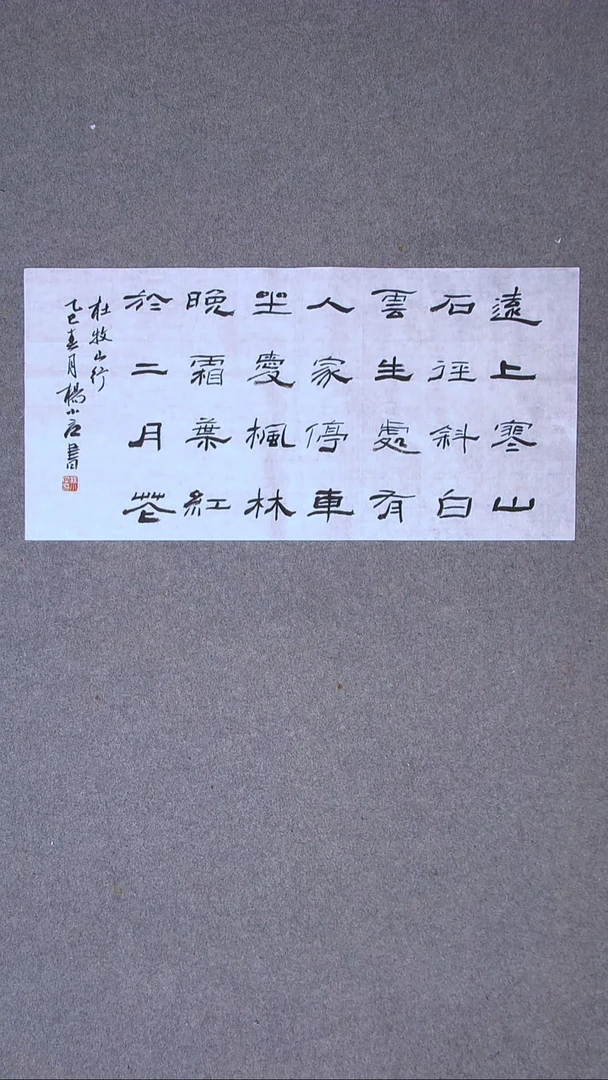 遠上寒山
石徑斜白
雲生處有
人家停車
坐愛楓林
晚霜葉紅
於二月花
杜牧山行
乙巳春月楊小書